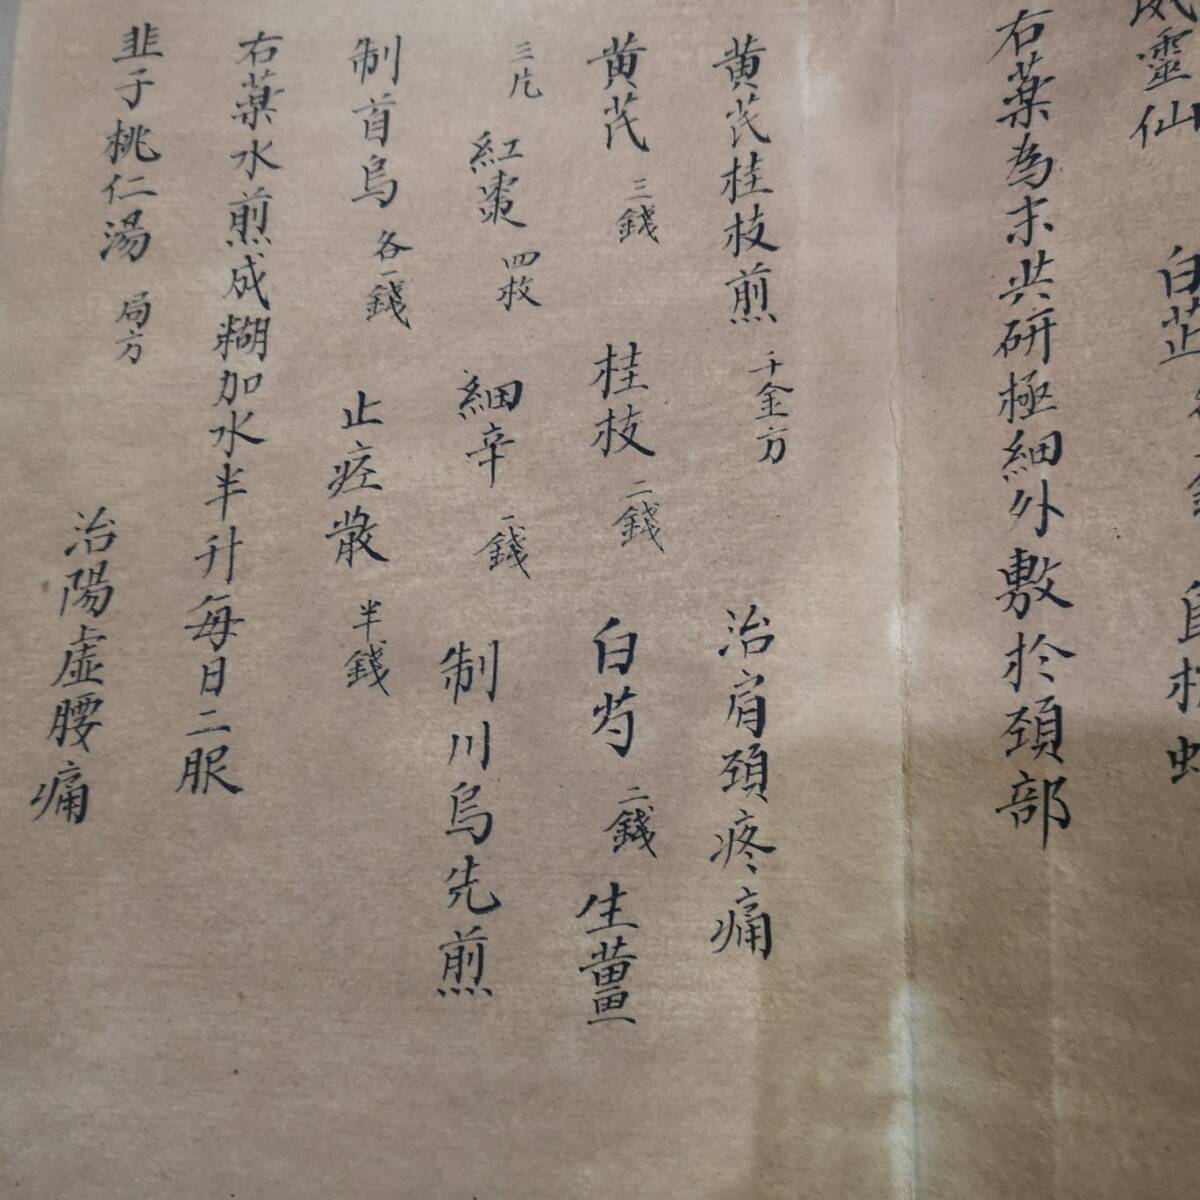 靈仙 白芷
右薬為末共研極細外敷於頚部
黄芪桂枝煎 千金方 治肩頚疼痛
黄芪 三錢 桂枝 二錢 白芍 二錢 生薑
三片 紅棗 四枚 細辛 一錢 制川烏先煎
制首烏 各一錢 止痙散 半錢
右薬水煎成糊加水半升每日二服
韭子桃仁湯 局方 治陽虛腰痛